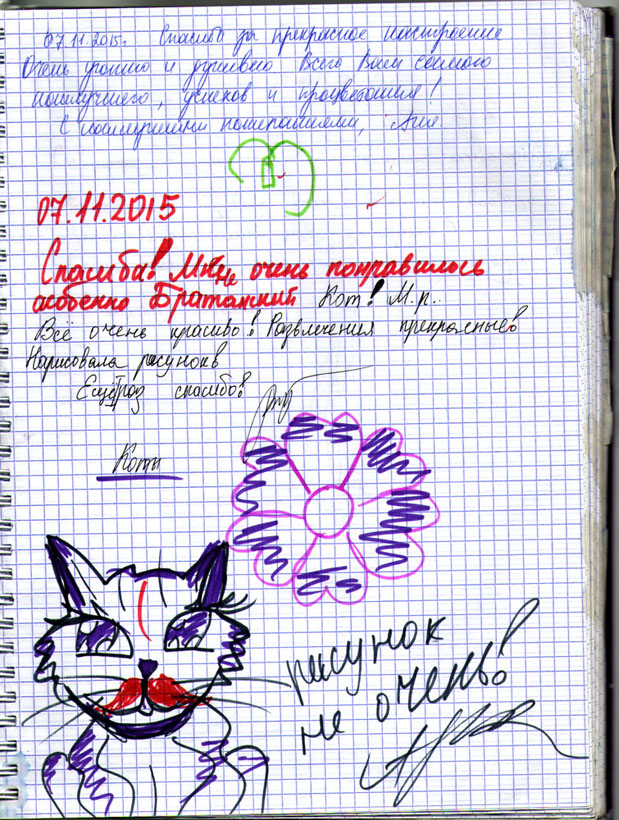 07.11.2015г. Спасибо за прекрасное настроение
Очень уютно и душевно. Всего Вам самого
наилучшего, успехов и процветания!
С наилучшими пожеланиями,
07.11.2015
Спасиба! Мне очень понравилось
особенно Британский Кот! М.р..
Всё очень красиво! Развлечения прекрасные!
Нарисовала рисунок
Ещё раз спасибо!
Коты
рисунок
не очень!